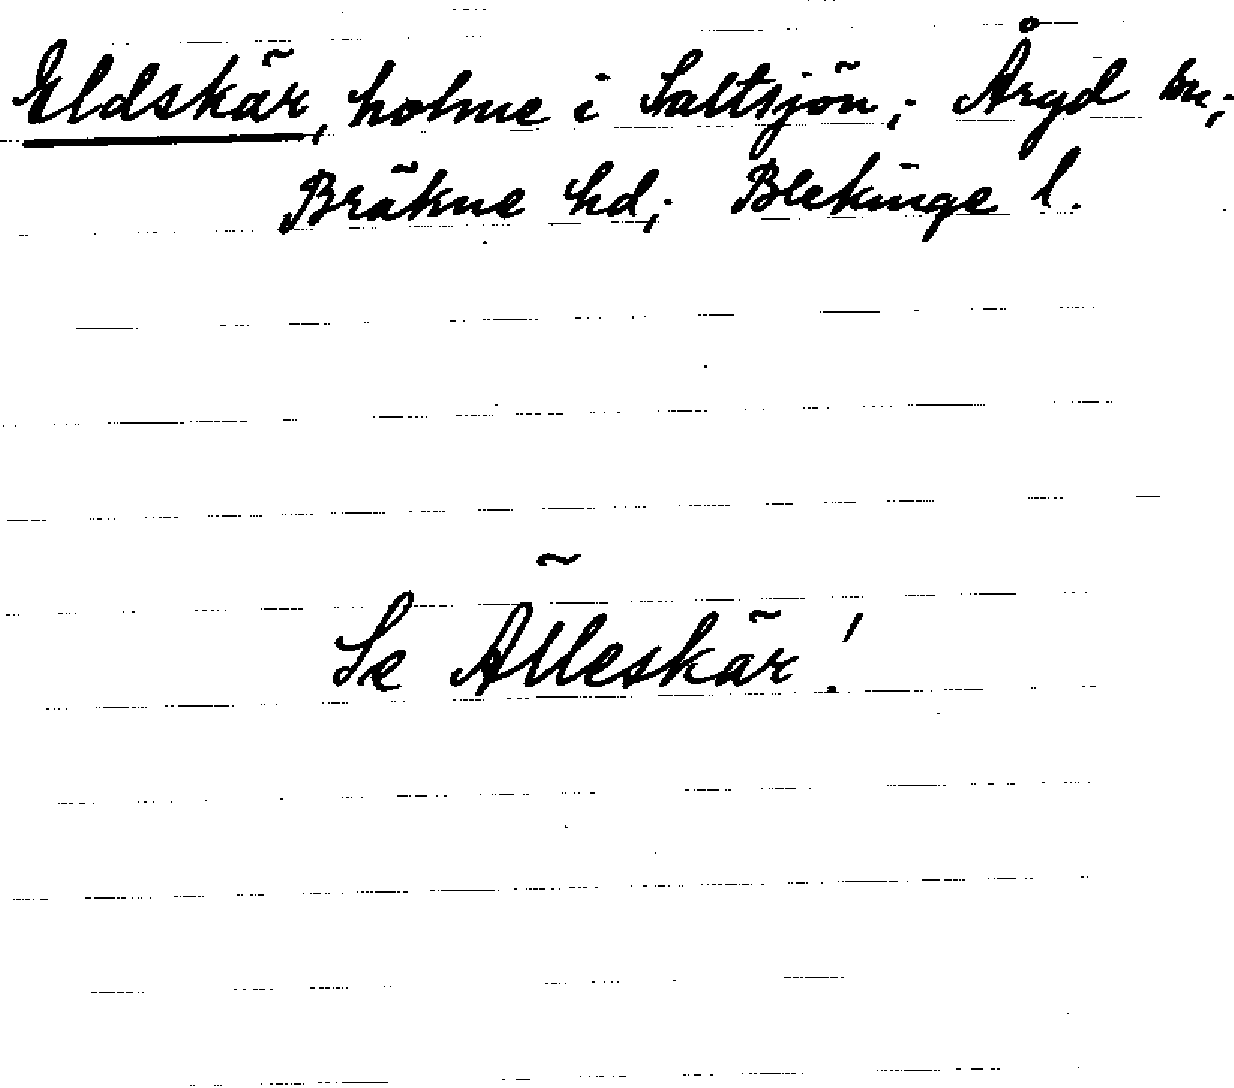 Eldskär, holme i Saltsjön; Åryd sn;
Bräkne hd; Blekinge l.
Se Älleskär!